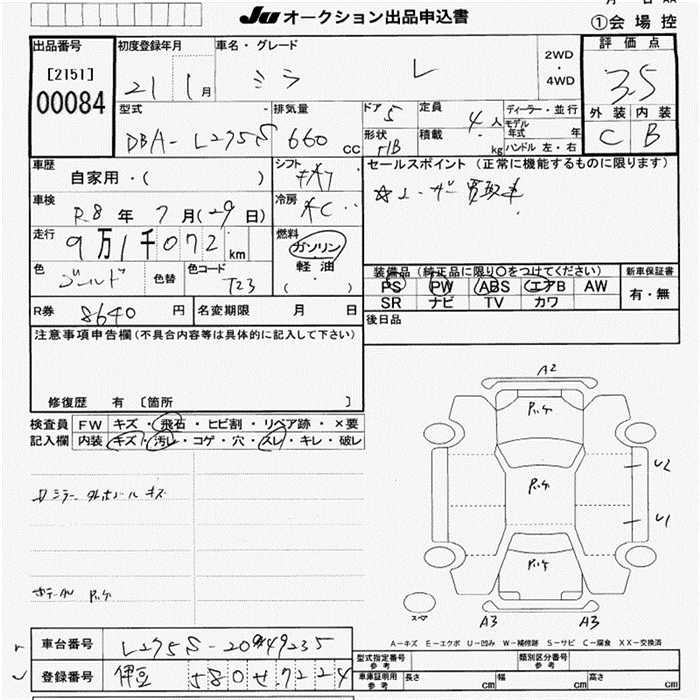 Ju オークション出品申込書
①会場控
出品番号
[2151]
00084
初度登録年月
21 1月
車名・グレード
ミラ L
2WD
・
4WD
評価点
3.5
外装 内装
C B
型式
DBA-L275S
排気量
660 cc
ドア 5
定員 4人
形状 H/B
積載 kg
ディーラー・並行
モデル年式 年
ハンドル 左・右
車歴
自家用・( )
車検
R8年 7月(29日)
走行
9万1千072km
色 ゴールド
色替
色コード T23
シフト
冷房 AC
燃料
ガソリン
軽油
( ・ )
セールスポイント(正常に機能するものに限ります)
☆ユーザー買取車
装備品(純正品に限り○をつけてください)
PS PW ABS エアB AW
SR ナビ TV カワ
新車保証書
有・無
R券 8640円
名変期限 月 日
後日品
注意事項申告欄(不具合内容等は具体的に記入して下さい)
修復歴 有〔箇所 〕
検査員記入欄
FW キズ・飛石・ヒビ割・リペア跡・×要
内装 キズ・汚レ・コゲ・穴・スレ・キレ・破レ
キズ
A2
U2
U1
A3 A3
スペア
A-キズ E-エクボ U-凹み W-補修跡 S-サビ C-腐食 XX-交換済
車台番号 L275S-2049235
登録番号 伊豆 580 せ 7224
型式指定番号 参考
類別区分番号 参考
車庫証明用 参考
長さ cm 幅 cm 高さ cm